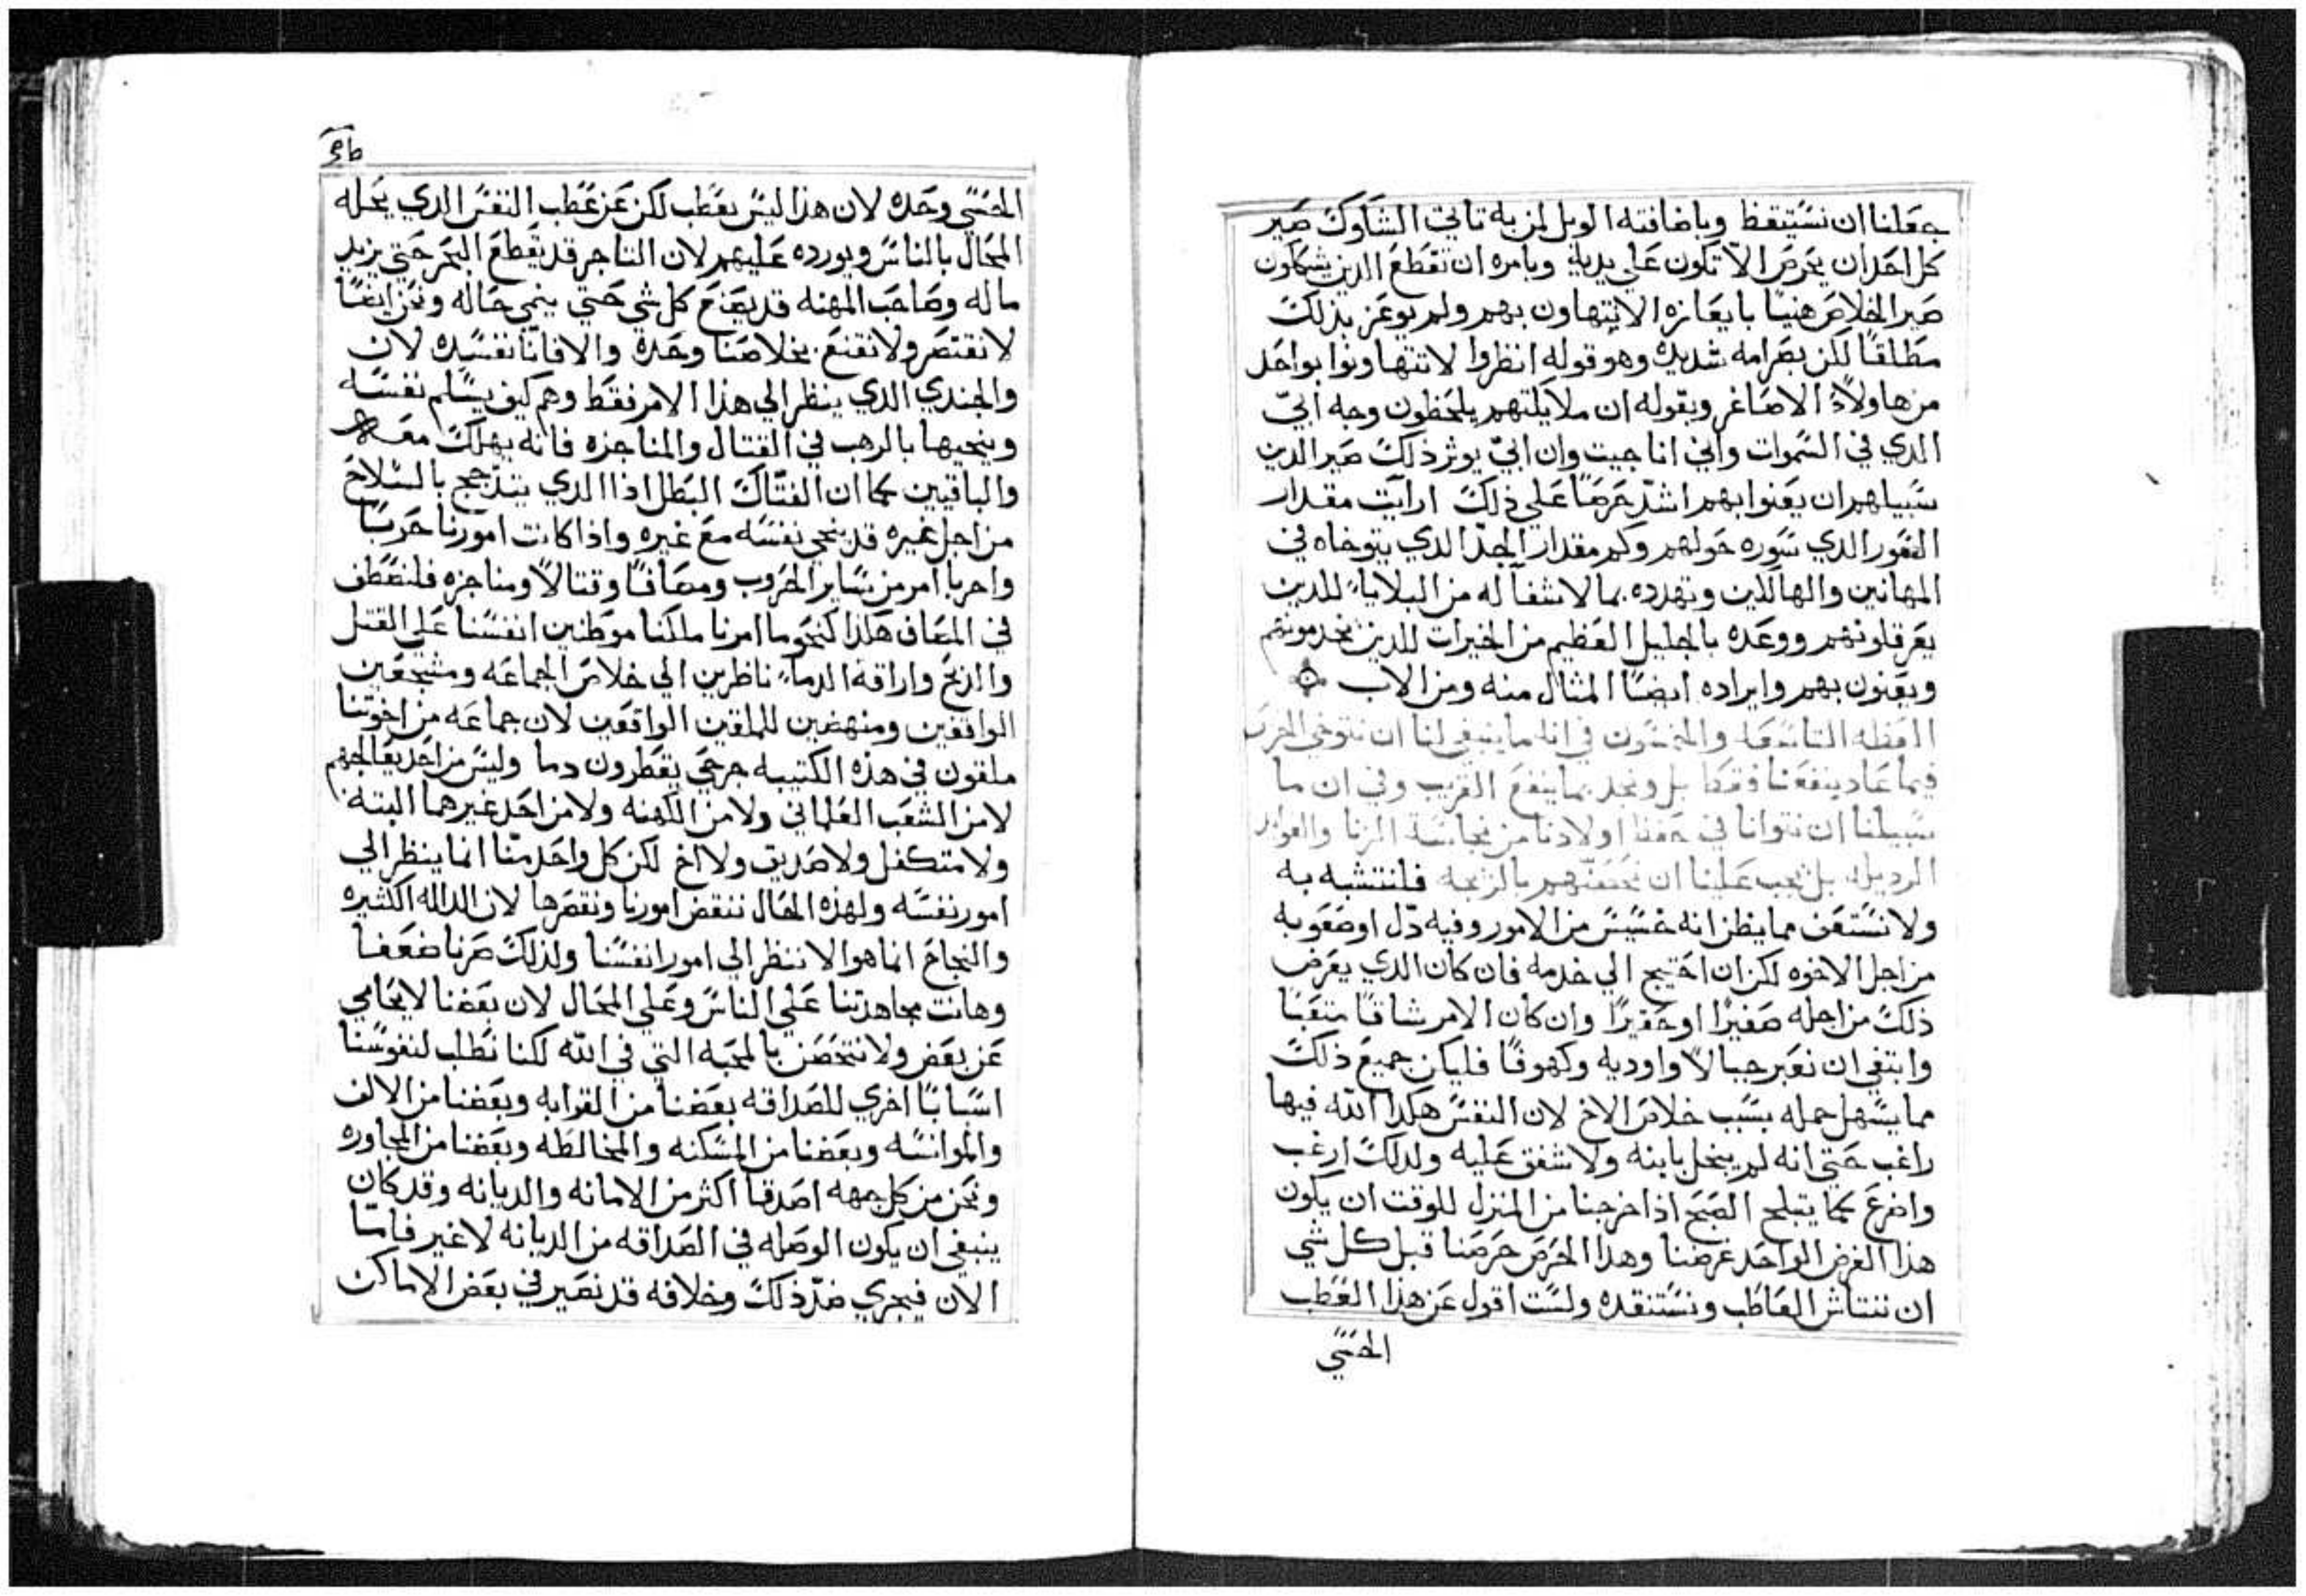 جعلنا ان نستيقظ وباضافته الويل لمن به تاتي الشكوك صير
كل احد ان يحرص الّا تكون على يديه وبامره ان تقطع الدين يشكلون
صير الخلاص هنيًا بايعازه الا يتهاون بهم ولم يوعز بذلك
مطلقًا لكن بصرامه شديده وهو قوله انظروا لا تتهاونوا بواحد
من هاولاء الاصاغر وبقوله ان ملايكتهم يلحظون وجه ابيّ
الدي في السموات واني انا جيت وان ابيّ يوثر ذلك صير الدين
سبيلهم ان يعنوا بهم اشدّ حرصًا على ذلك ارايت مقدار
السور الدي سوره حولهم وكم مقدار الجدّ الدي يتوخاه في
المهانين والهالكين وتهدده بما لا شفآ له من البلايا للدين
يعرقلونهم ووعده بالجليل العظيم من الخيرات للدين يخدمونهم
ويعنون بهم وايراده ايضًا المثال منه ومن الاب
العظه التاسعه والخمسون في انه ما ينبغي لنا ان نتوخي الحرص
فيما عاد ينفعنا فقط بل ونجد بما ينفع القريب وفي ان ما
سبيلنا ان نتوانا في حفظ اولادنا من نجاسة الزنا والعوايد
الرديله بل يجب علينا ان نحصنهم بالزيجه فلنتشبه به
ولا نستعف مما يظن انه خسيس من الامور وفيه ذّل او صعوبه
من اجل الاخوه لكن ان احتيج الي خدمه فان كان الدي يعرض
ذلك من اجله صغيرًا او حقيرًا وان كان الامر شاقًا متعبًا
وابتغي ان نعبر جبالًا واوديه وكهوفًا فليكن جميع ذلك
مما يسهل حمله بسبب خلاص الاخ لان النفس هكدا الله فيها
راغب حتي انه لم يبخل بابنه ولا شفق عليه ولدلك ارغب
واضرع كما يتبلج الصبح اذا خرجنا من المنزل للوقت ان يكون
هذا الغرض الواحد غرضنا وهدا الحرص حرصنا قبل كل شي
ان ننتاش العاطب ونستنقده ولست اقول عن هذا العطب
الحسّي
الحسّي وحده لان هذا ليس بعطب لكن عن عطب النفس الدي يحمله
المحال بالناس ويورده عليهم لان التاجر قد يقطع البحر حتي يزيد
ماله وصاحب المهنه قد يصنع كل شي حتي ينمي حاله ونحن ايضًا
لا نقتصر ولا نقنع بخلاصنا وحده والا فاننا نفسده لان
والجندي الدي ينظر الي هذا الامر فقط وهم كيف يسلم نفسه
وينجيها بالرهب في القتال والمناجزه فانه يهلك معها
والباقيين كما ان الفتّاك البطل اذا الدي يتدّجج بالسلاح
من اجل غيره قد ينجي نفسه مع غيره واذا كانت امورنا حربًا
واحربا امر من ساير الحروب ومصافًا وقتالًا ومناجزه فلنصطف
في المصاف هكذا كنحو ما امرنا ملكنا موطنين انفسنا علي القتل
والدبح واراقة الدما ناظرين الي خلاص الجماعه ومشجعين
الواقفين ومنهضين للملقين الواقعين لان جماعه من اخوتنا
ملقون في هذه الكتيبه جرحي يقطرون دما وليس من احد يعالجهم
لا من الشعب العلماني ولا من الكهنه ولا من احد غيرهما البته
ولا متكفل ولا صديق ولا اخ لكن كل واحد منّا انما ينظر الي
امور نفسه ولهذه الحال ننقض امورنا ونقصرها لان الداله الكثيره
والنجاح انما هو الا ننظر الي امور انفسنا ولذلك صرنا ضعفا
وهانت مجاهدتنا علي الناس وعلي المحال لان بعضنا لا يحامي
عن بعض ولا نتحصن بالمحبه التي في الله لكنا نطلب لنفوسنا
اسبابًا اخري للصداقه بعضنا من القرابه وبعضنا من الالف
والموانسه وبعضنا من المسكنه والمخالطه وبعضنا من المجاوره
ونحن من كل جهه اصدقا اكثر من الامانه والديانه وقد كان
ينبغي ان يكون الوصله في الصداقه من الديانه لا غير فامّا
الان فيجري ضدّ ذلك وخلافه قد نصير في بعض الاماكن